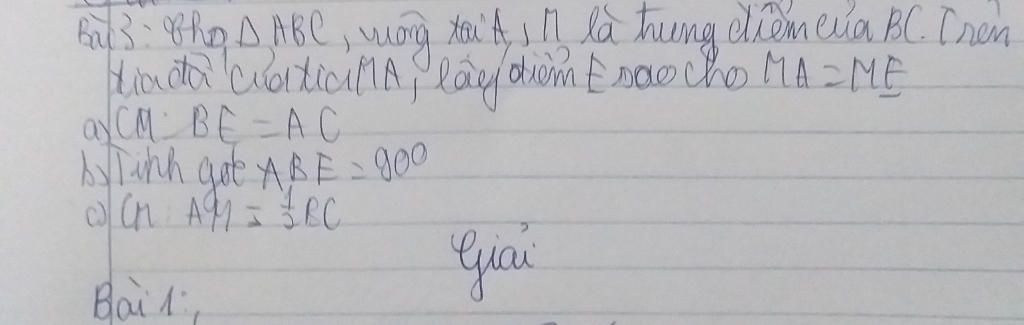 Bài 3: Cho Δ ABC, vuông tại A, M là trung điểm của BC. Trên
tia đối của tia MA, lấy điểm E sao cho MA = ME
a) CM: BE = AC
b) Tính góc ABE = 90⁰
c) CM: AM = ½ BC
Giải
Bài 1:,